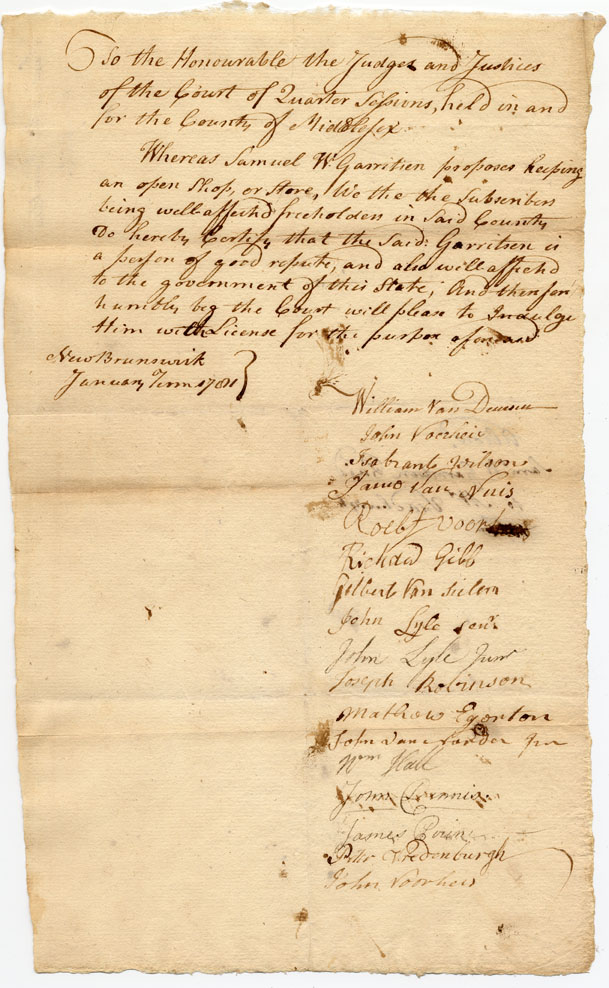 To the Honourable the Judges and Justices
of the Court of Quarter Sessions, held in and
for the County of Middlesex
Whereas Samuel W. Garritsen proposes keeping
an open Shop, or Store, We the the Subscribers
being well affectd freeholders in Said County
Do hereby Certify that the Said: Garritsen is
a person of good repute, and also well affectd
to the government of this State; And therefore
humbly beg the Court will please to Indulge
Him with License for the purpose aforesaid
New Brunswick
January Term 1781
William Van Deursen
John Voorheis
Isabrant Wilson
James Van Nuis
Roelf Voorhees
Richard Gibb
Gilbert Van
John Lyle senr
John Lyle Junr
Joseph Robinson
Mathew Egorton
John Van Jur
Wm Hall
John Dennis
James
Petr Vredenburgh
John Voorhees